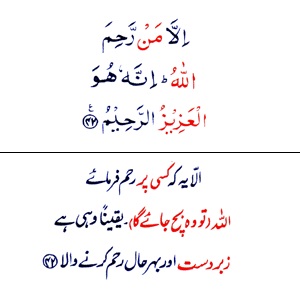 اِلَّا مَنْ رَّحِمَ
اللّٰهُ ؕ اِنَّهٗ هُوَ
الْعَزِيْزُ الرَّحِيْمُ ﴿۴۲﴾ ع
الّا یہ کہ کسی پر رحم فرمائے
اللہ (تو وہ بچ جائے گا)۔ یقیناً وہی ہے
زبردست اور بہر حال رحم کرنے والا ﴿۴۲﴾